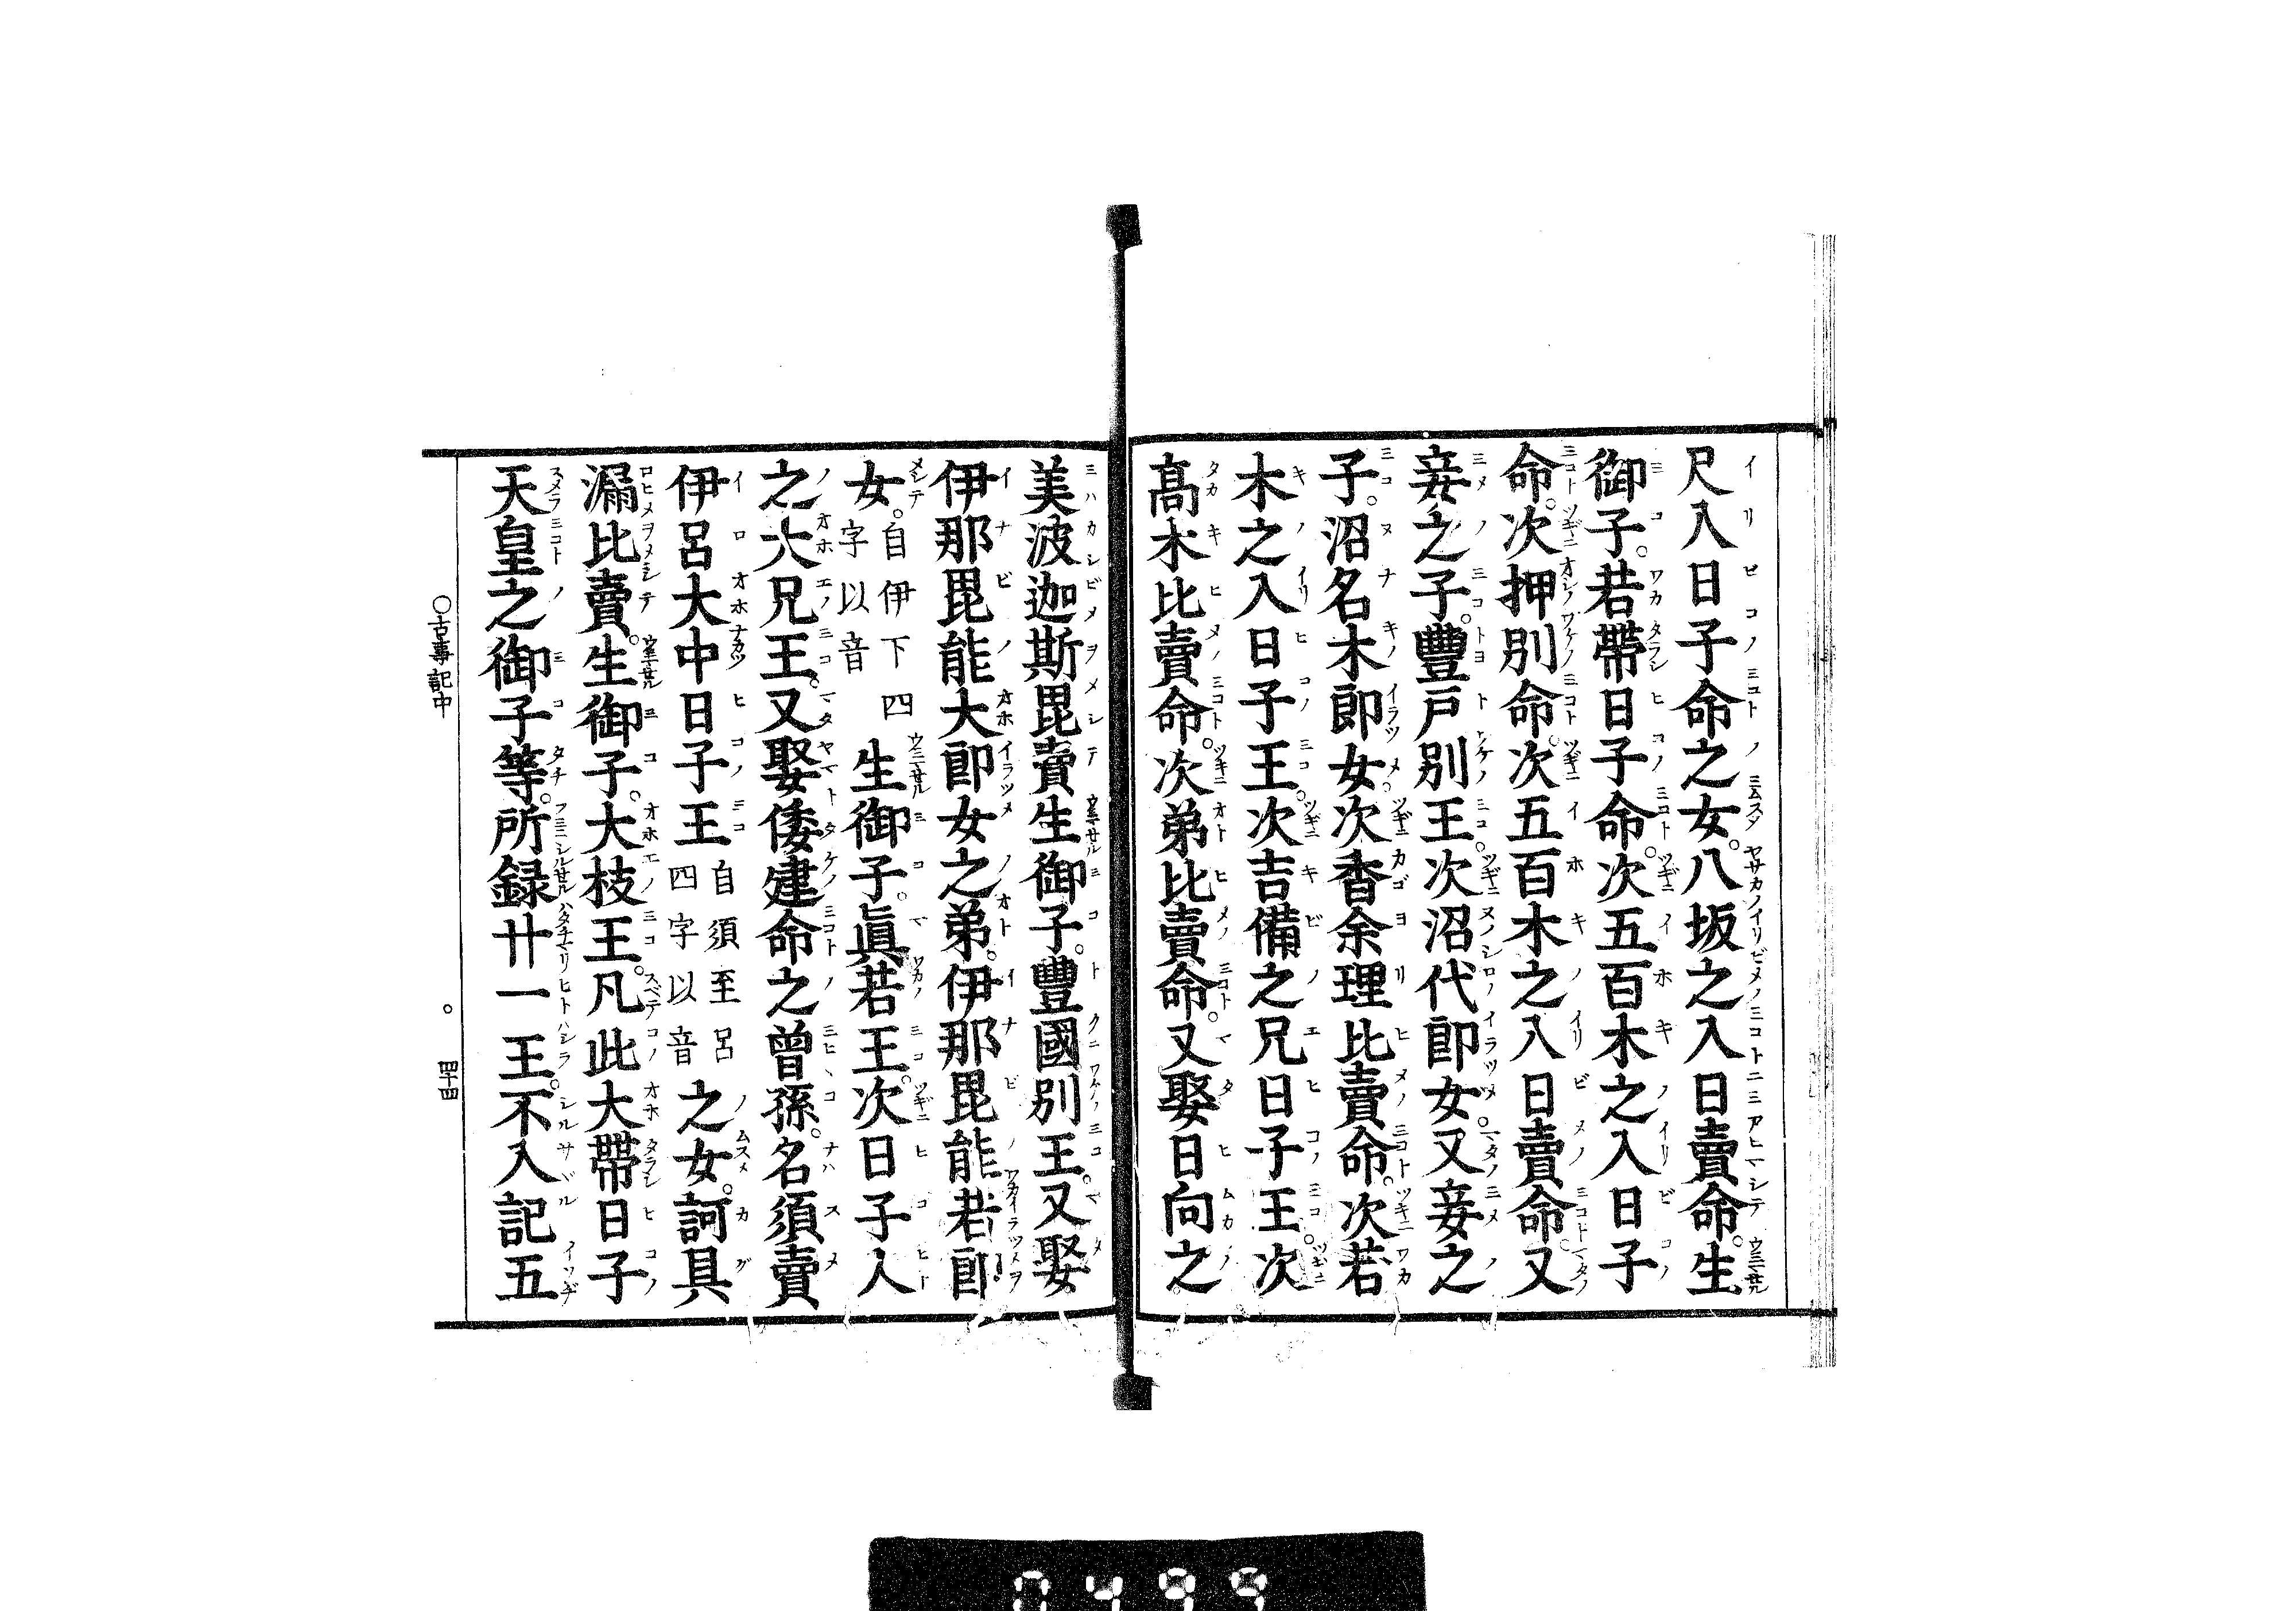 尺入日子命之女。八坂之入日賣命。生
御子。若帶日子命。次五百木之入日子
命。次押別命。次五百木之入日賣命。又
妾之子。豐戸別王。次沼代郎女。又妾之
子。沼名木郎女。次香余理比賣命。次若
木之入日子王。次吉備之兄日子王。次
高木比賣命。次弟比賣命。又娶日向之
美波迦斯毘賣生御子。豐國別王。又娶
伊那毘能大郎女之弟。伊那毘能若郎
女。自伊下四字以音生御子。眞若王。次日子人
之大兄王。又娶倭建命之曾孫。名須賣
伊呂大中日子王自須至呂四字以音之女。訶具
漏比賣。生御子。大枝王。凡此大帶日子
天皇之御子等。所録廿一王。不入記五
○古事記中 。 四十四
0499